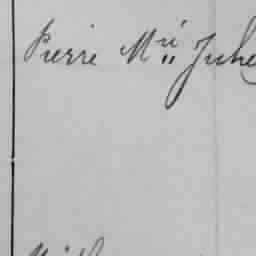 Pierre Mie Juhe